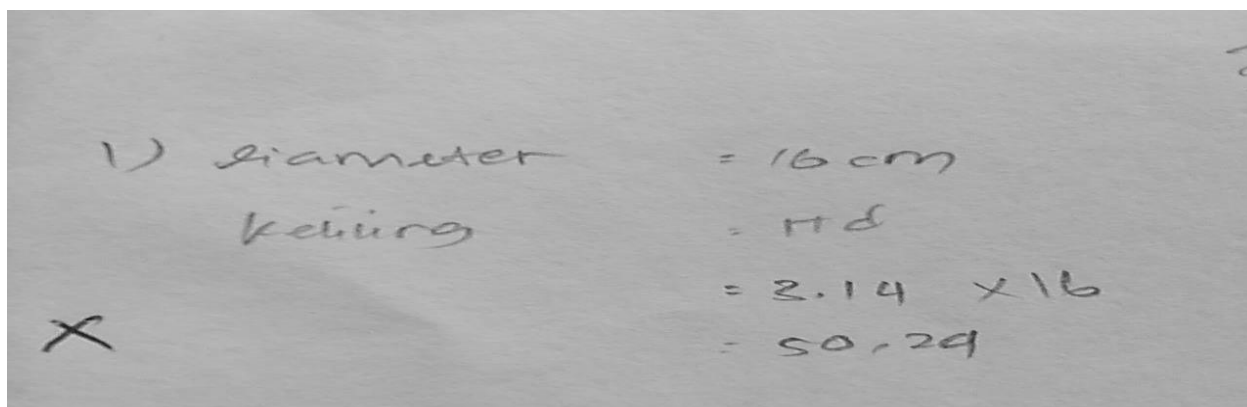 1) diameter = 16 cm
Keliling = πd
= 3.14 × 16
= 50,24
×